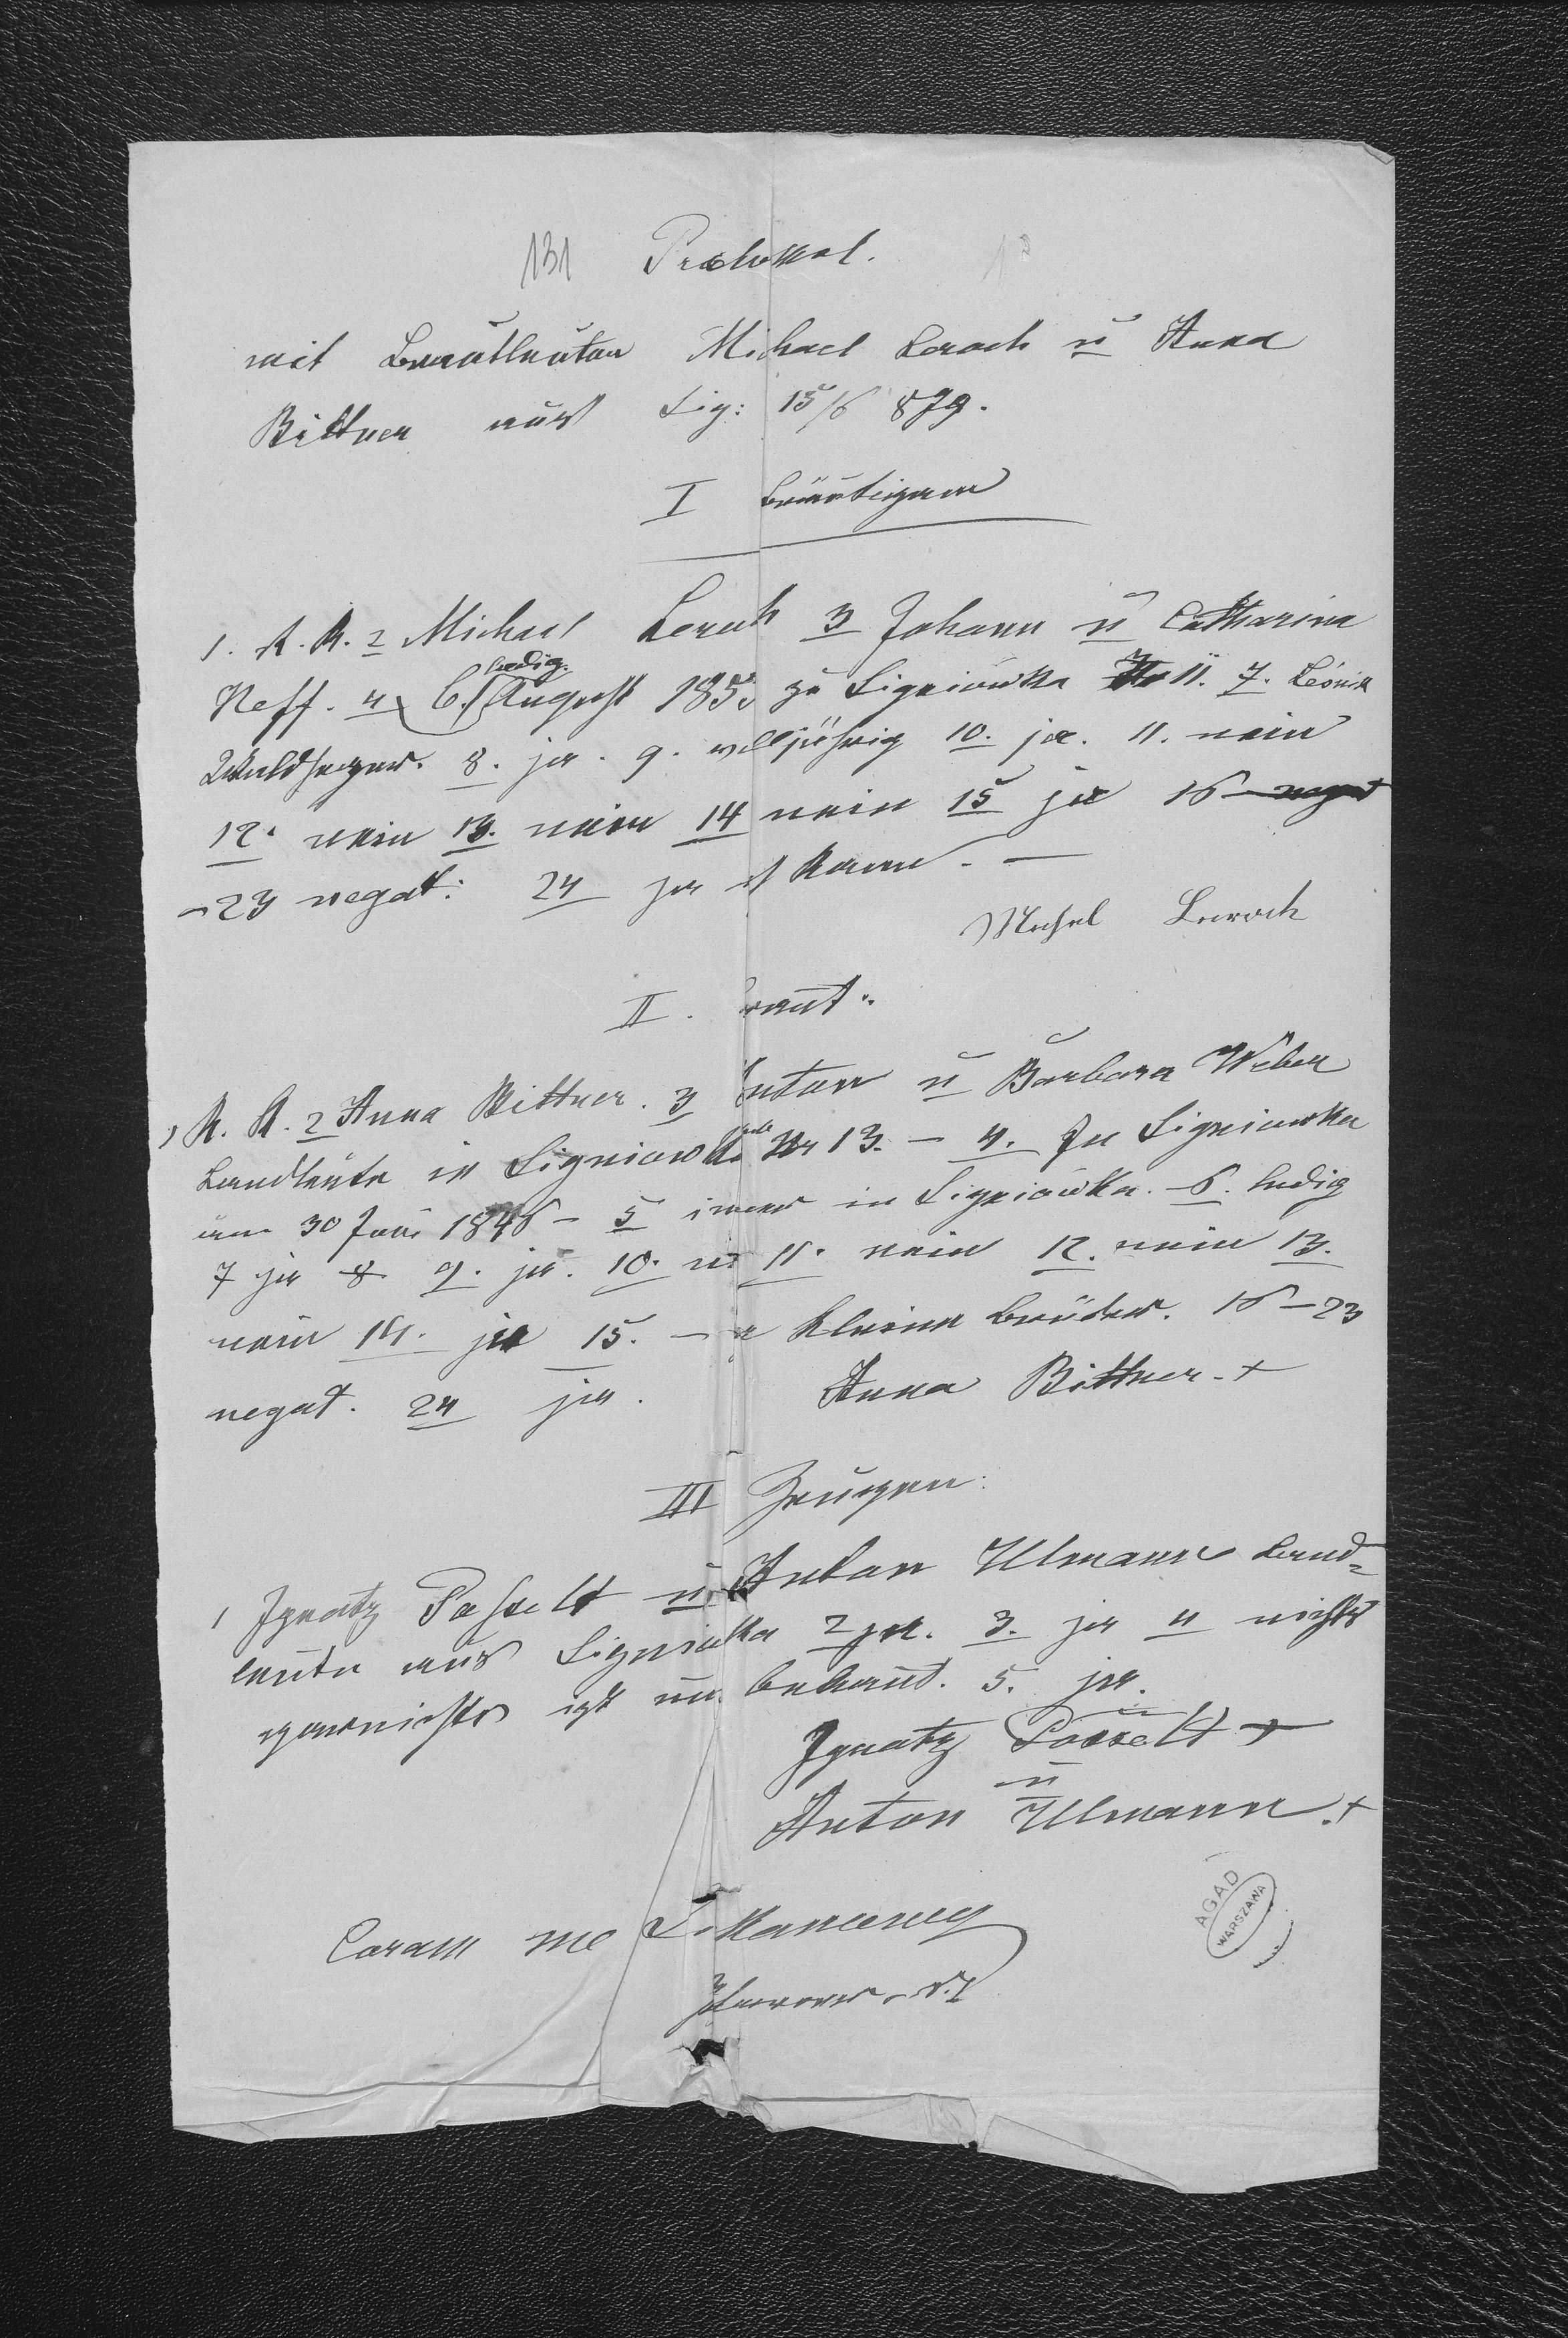 131 Protokol.
mit Brautleuten Michael Lerach ŭ Anna
Bittner aus Sig: 15/6 879.
I Bräutigam
1. R. K. 2 Michael Lerach 3 Johann ŭ Catharina
Neff. 4 6. ledig. August 185 zu Signiówka No 11. 7. Leśnik
Waldheger. 8. ja. 9. volljährig 10. ja. 11. nein
12. nein 13. nein 14 nein 15 ja 16 negat
- 23 negat: 24 ja
Michel Lerach
II. Braut.
1 R. K. 2 Anna Bittner. 3 Anton ŭ Barbara Weber
Landleute in Signiówka Nr 13. - 4. Zu Signiowka
am 30 Juni 1846 - 5 immer in Signiówka. 6. ledig
7 ja 8 9. ja. 10. 11. nein 12. nein 13.
nein 14. ja 15. - kleine Brüder. 16 - 23
negat. 24 ja.
Anna Bittner. +
III Zeugen:
1 Ignatz Posselt ŭ Anton Ulmann Land=
leute aus Signiówka 2 ja. 3. ja 4 nichts
garnichts ist uns bekannt. 5. ja.
Ignatz Posselt +
ŭ
Anton Ulmann. +
Coram me
AGAD
WARSZAWA